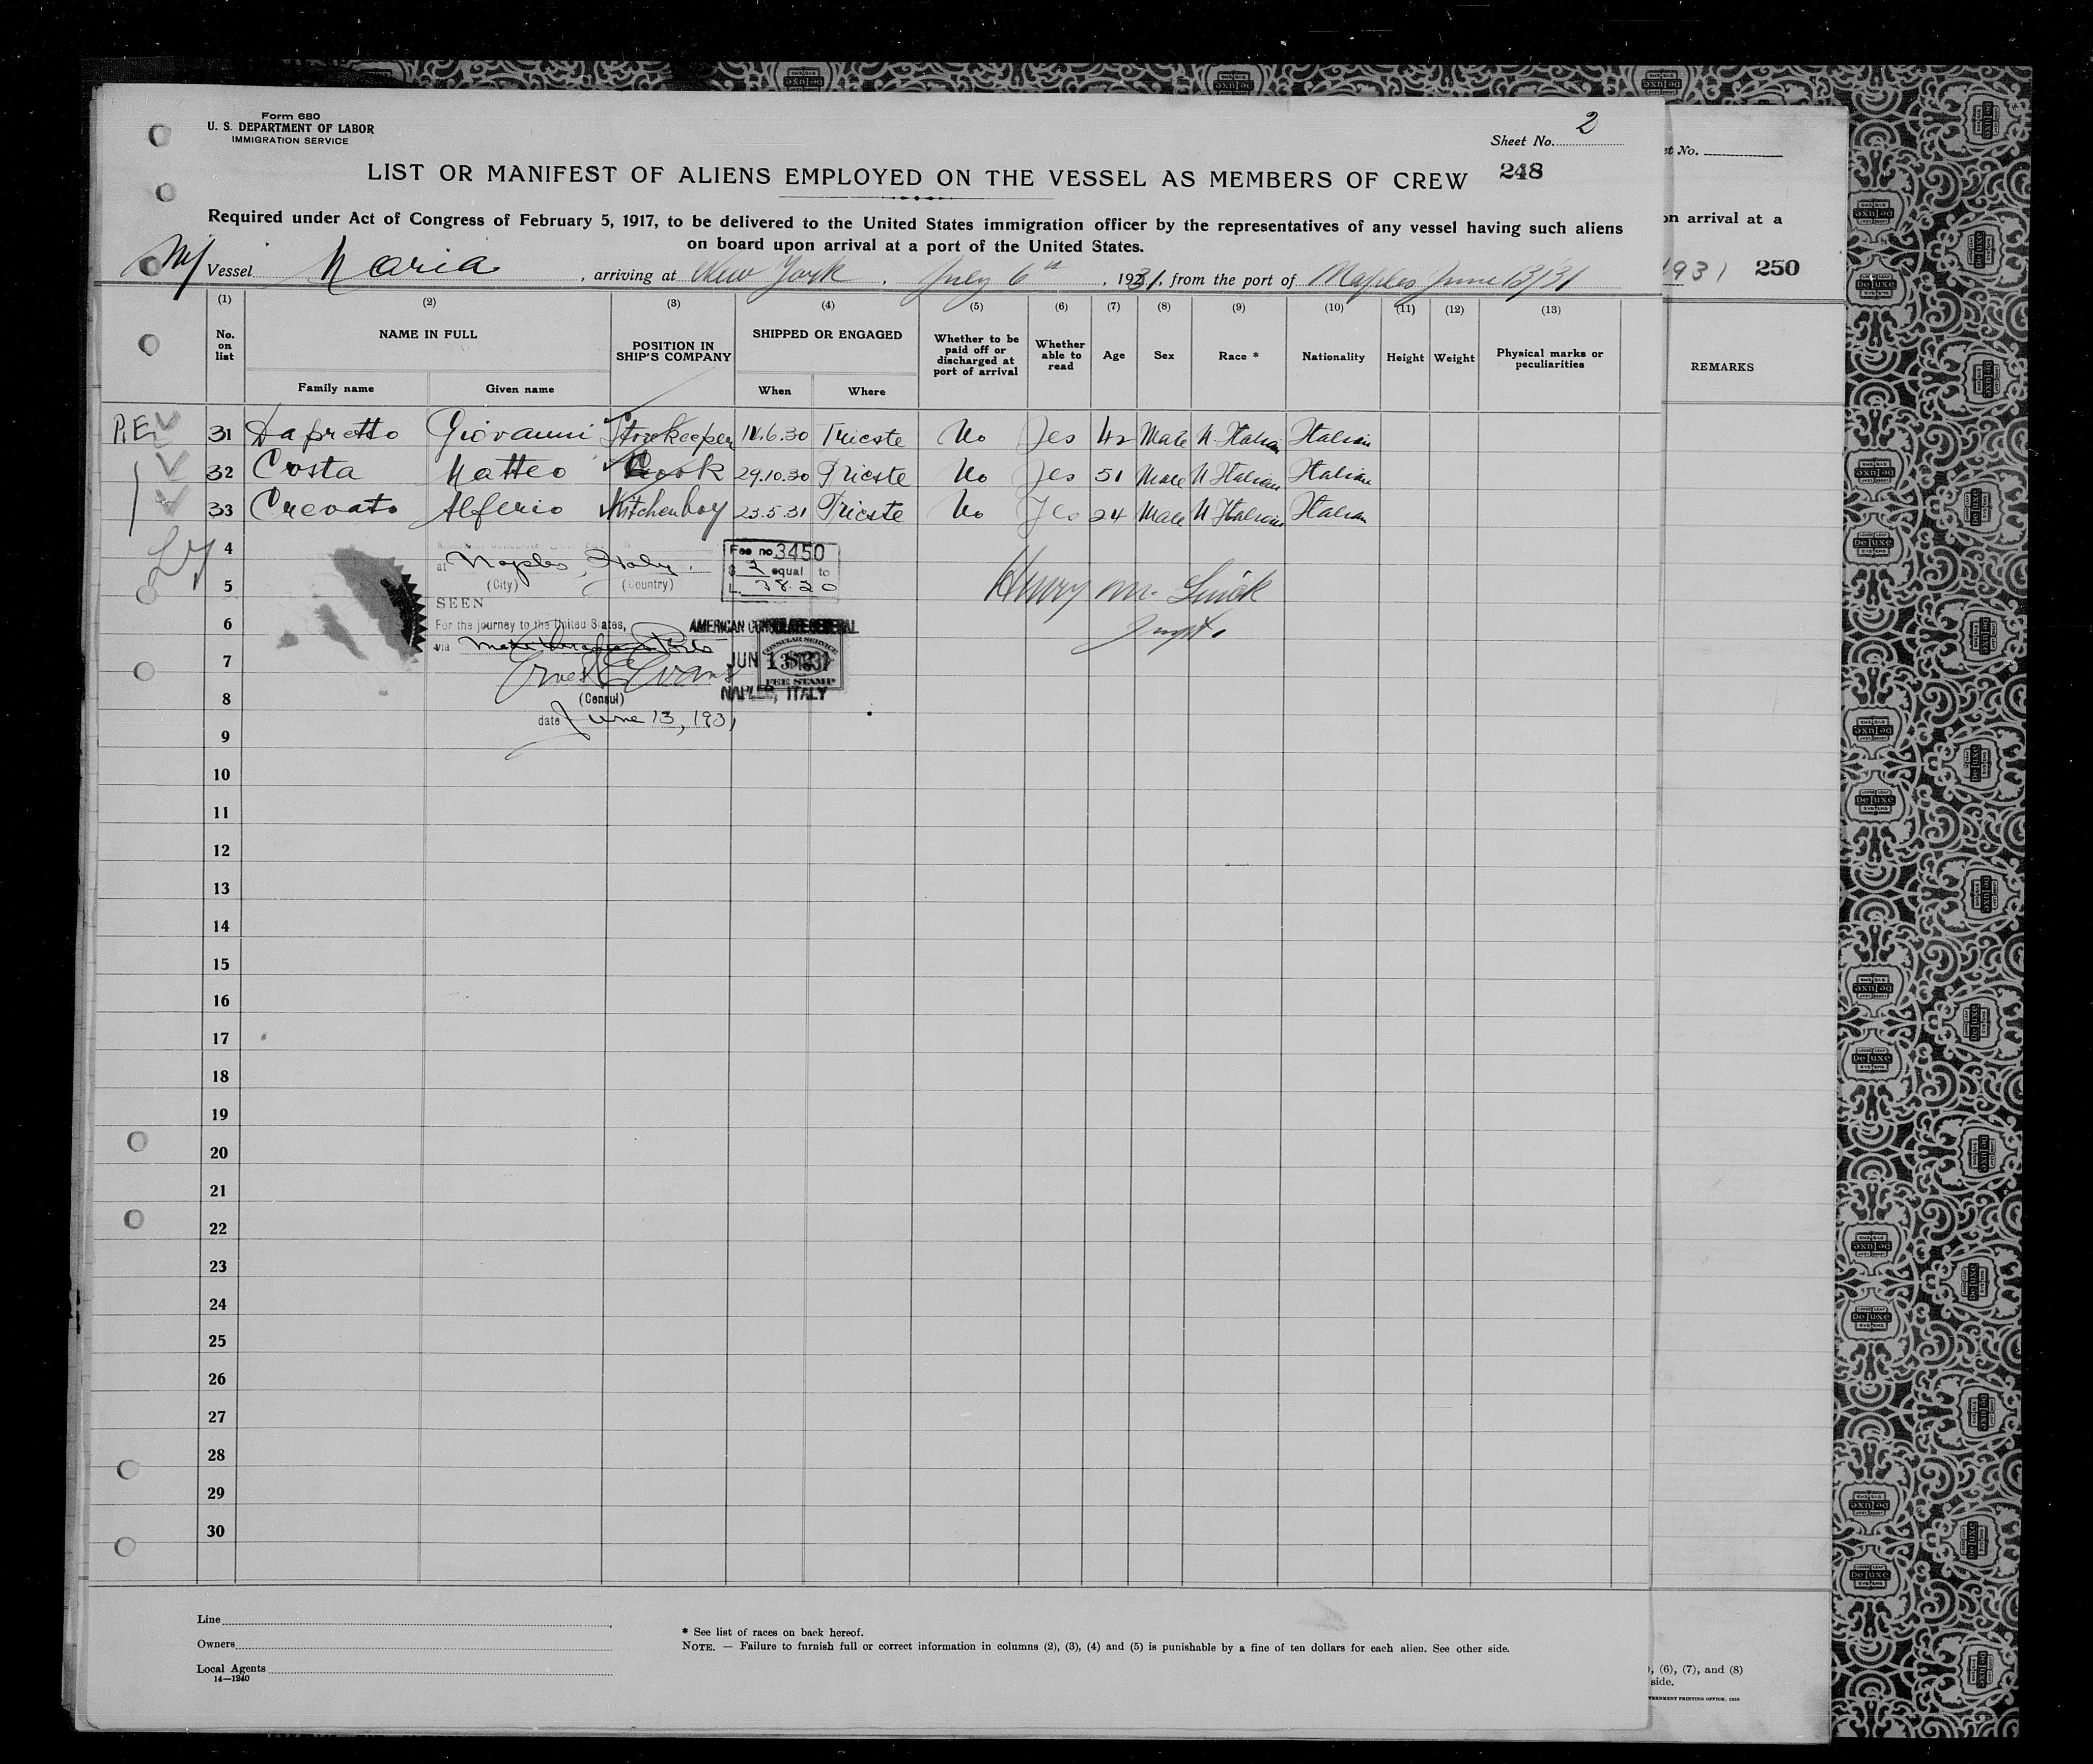 Form 680
U. S. DEPARTMENT OF LABOR
IMMIGRATION SERVICE
Sheet No. 2
248
LIST OR MANIFEST OF ALIENS EMPLOYED ON THE VESSEL AS MEMBERS OF CREW
Required under Act of Congress of February 5, 1917, to be delivered to the United States immigration officer by the representatives of any vessel having such aliens
on board upon arrival at a port of the United States.
M/ Vessel Maria, arriving at New York, July 6th, 1931, from the port of Naples June 13/31
(1) (2) (3) (4) (5) (6) (7) (8) (9) (10) (11) (12) (13)
No. on list
NAME IN FULL
Family name
Given name
POSITION IN SHIP'S COMPANY
SHIPPED OR ENGAGED
When
Where
Whether to be paid off or discharged at port of arrival
Whether able to read
Age
Sex
Race *
Nationality
Height
Weight
Physical marks or peculiarities
P.E. 31 Dapretto Giovanni Storekeeper 11.6.30 Trieste No Yes 42 Male N. Italian Italian
32 Costa Matteo Cook 29.10.30 Trieste No Yes 51 Male N Italian Italian
33 Crevato Alferio Kitchenboy 23.5.31 Trieste No Yes 24 Male N Italian Italian
4
at Naples, Italy.
(City) (Country)
Fee no 3450
$ 2 equal to
L. 38.20
5
SEEN
Henry M.
6
For the journey to the United States,
AMERICAN CONSULATE GENERAL
via
7
Ernest Evans
JUN 13 1931
CONSULAR SERVICE
FEE STAMP
8
(Consul)
NAPLES, ITALY
date June 13, 1931
9
10
11
12
13
14
15
16
17
18
19
20
21
22
23
24
25
26
27
28
29
30
Line
Owners
Local Agents
14—1240
* See list of races on back hereof.
NOTE. — Failure to furnish full or correct information in columns (2), (3), (4) and (5) is punishable by a fine of ten dollars for each alien. See other side.
et No.
on arrival at a
1931 250
REMARKS
, (6), (7), and (8)
side.
VERNMENT PRINTING OFFICE.